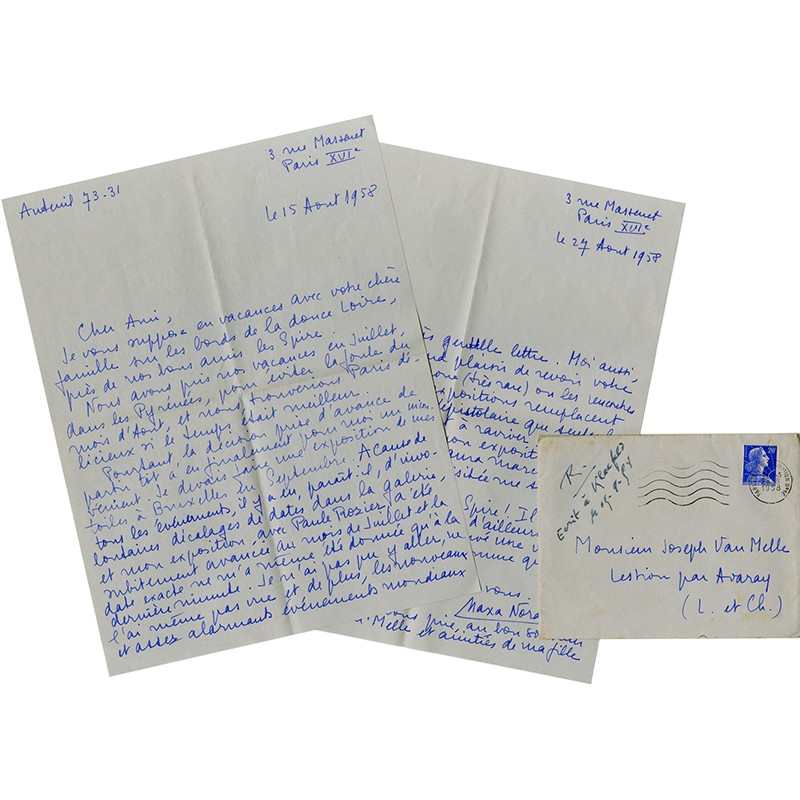 3 rue Massenet
Paris XVIe
Auteuil 73-31
le 15 Aout 1958
Cher Ami,
Je vous suppose en vacances avec votre chère
famille sur les bords de la douce Loire,
près de nos bons amis les Spire.
Nous avons pris nos vacances en Juillet,
dans les Pyrénées, pour éviter la foule du
mois d'Aout, et nous trouverions Paris dé-
licieux si le temps était meilleur.
Pourtant la décision prise d'avance de
partir tôt a été finalement pour moi un
vénient. Je devais faire une exposition de mes
toiles à Bruxelles en Septembre. A cause de
tous les événements, il y a eu, paraît-il, d'invo-
lontaires décalages de dates dans la galerie,
et mon exposition, avec Paule Rozier, a été
subitement avancée au mois de Juillet et la
date exacte ne m'a même été donnée qu'à la
dernière minute. Je n'ai pas pu y aller, ne
l'ai même pas vue et de plus, les nouveaux
et assez alarmants événements mondiaux
3 rue Massenet
Paris XVIe
le 27 Aout 1958
gentille lettre. Moi aussi,
plaisir de revoir votre
(très rare) où les rencontres
expositions remplacent
épistolaire que
à raviver.
mon exposit
aura marc
visitée
Spire! Il
d'ailleur
une v
comme qu
vous.
Maxa Nord
prie, au bon
Melle et amitiés de ma fille
R.
Ecrit à
Monsieur Joseph Van Melle
Lestiou par Avaray
(L. et Ch.)
1958